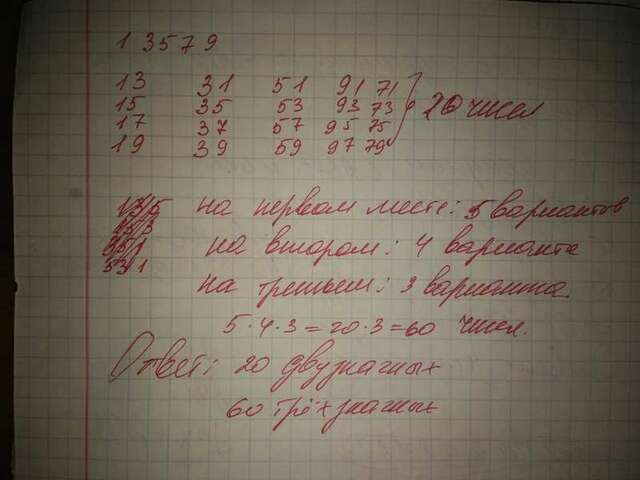 1 3 5 7 9
13 31 51 91 71
15 35 53 93 73 20 чисел
17 37 57 95 75
19 39 59 97 79
135 на первом месте: 5 вариантов
153
351 на втором: 4 варианта
531
на третьем: 3 варианта.
5·4·3=20·3=60 чисел.
Ответ: 20 двузначных
60 трёхзначных